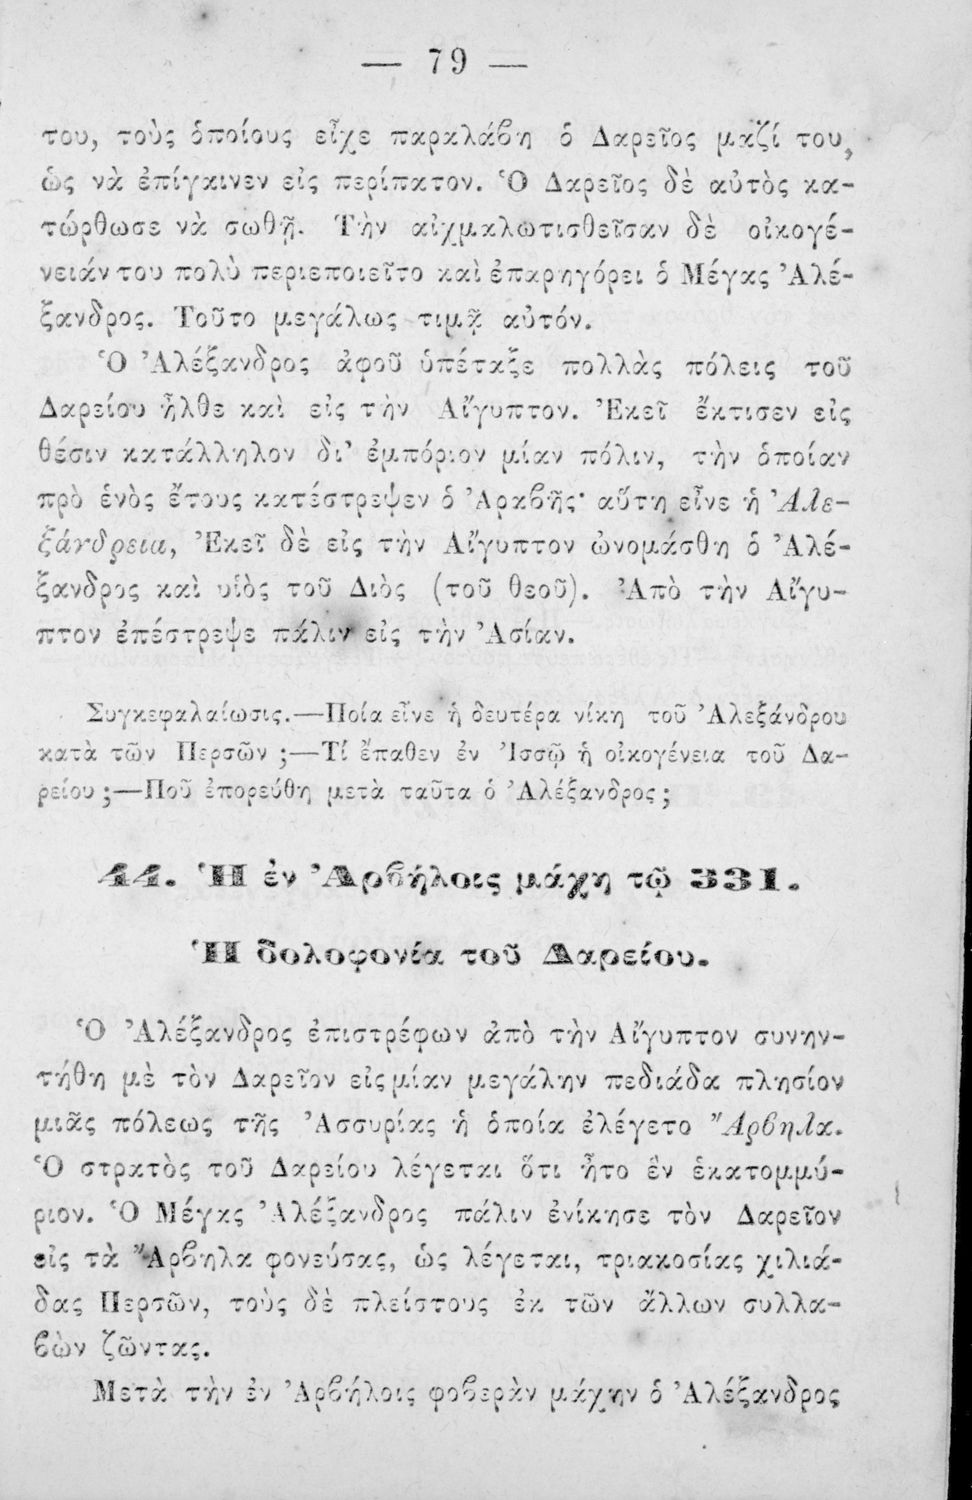 — 79 —
του, τοὺς ὁποίους εἶχε παραλάβη ὁ Δαρεῖος μαζί του,
ὡς νὰ ἐπίγαινεν εἰς περίπατον. Ὁ Δαρεῖος δὲ αὐτὸς κα-
τώρθωσε νὰ σωθῇ. Τὴν αἰχμαλωτισθεῖσαν δὲ οἰκογέ-
νειάν του πολὺ περιεποιεῖτο καὶ ἐπαρηγόρει ὁ Μέγας Ἀλέ-
ξανδρος. Τοῦτο μεγάλως τιμᾷ αὐτόν.
Ὁ Ἀλέξανδρος ἀφοῦ ὑπέταξε πολλὰς πόλεις τοῦ
Δαρείου ἦλθε καὶ εἰς τὴν Αἴγυπτον. Ἐκεῖ ἔκτισεν εἰς
θέσιν κατάλληλον δι' ἐμπόριον μίαν πόλιν, τὴν ὁποίαν
πρὸ ἑνὸς ἔτους κατέστρεψεν ὁ Ἀραβῆς· αὕτη εἶνε ἡ Ἀλε-
ξάνδρεια, Ἐκεῖ δὲ εἰς τὴν Αἴγυπτον ὠνομάσθη ὁ Ἀλέ-
ξανδρος καὶ υἱὸς τοῦ Διὸς (τοῦ θεοῦ). Ἀπὸ τὴν Αἴγυ-
πτον ἐπέστρεψε πάλιν εἰς τὴν Ἀσίαν.
Συγκεφαλαίωσις.—Ποία εἶνε ἡ δευτέρα νίκη τοῦ Ἀλεξάνδρου
κατὰ τῶν Περσῶν ;—Τί ἔπαθεν ἐν Ἰσσῷ ἡ οἰκογένεια τοῦ Δα-
ρείου ;—Ποῦ ἐπορεύθη μετὰ ταῦτα ὁ Ἀλέξανδρος ;
44. Ἡ ἐν Ἀρβήλοις μάχη τῷ 331.
Ἡ δολοφονία τοῦ Δαρείου.
Ὁ Ἀλέξανδρος ἐπιστρέφων ἀπὸ τὴν Αἴγυπτον συνην-
τήθη μὲ τὸν Δαρεῖον εἰς μίαν μεγάλην πεδιάδα πλησίον
μιᾶς πόλεως τῆς Ἀσσυρίας ἡ ὁποία ἐλέγετο Ἄρβηλα.
Ὁ στρατὸς τοῦ Δαρείου λέγεται ὅτι ἦτο ἓν ἑκατομμύ-
ριον. Ὁ Μέγας Ἀλέξανδρος πάλιν ἐνίκησε τὸν Δαρεῖον
εἰς τὰ Ἄρβηλα φονεύσας, ὡς λέγεται, τριακοσίας χιλιά-
δας Περσῶν, τοὺς δὲ πλείστους ἐκ τῶν ἄλλων συλλα-
βὼν ζῶντας.
Μετὰ τὴν ἐν Ἀρβήλοις φοβερὰν μάχην ὁ Ἀλέξανδρος